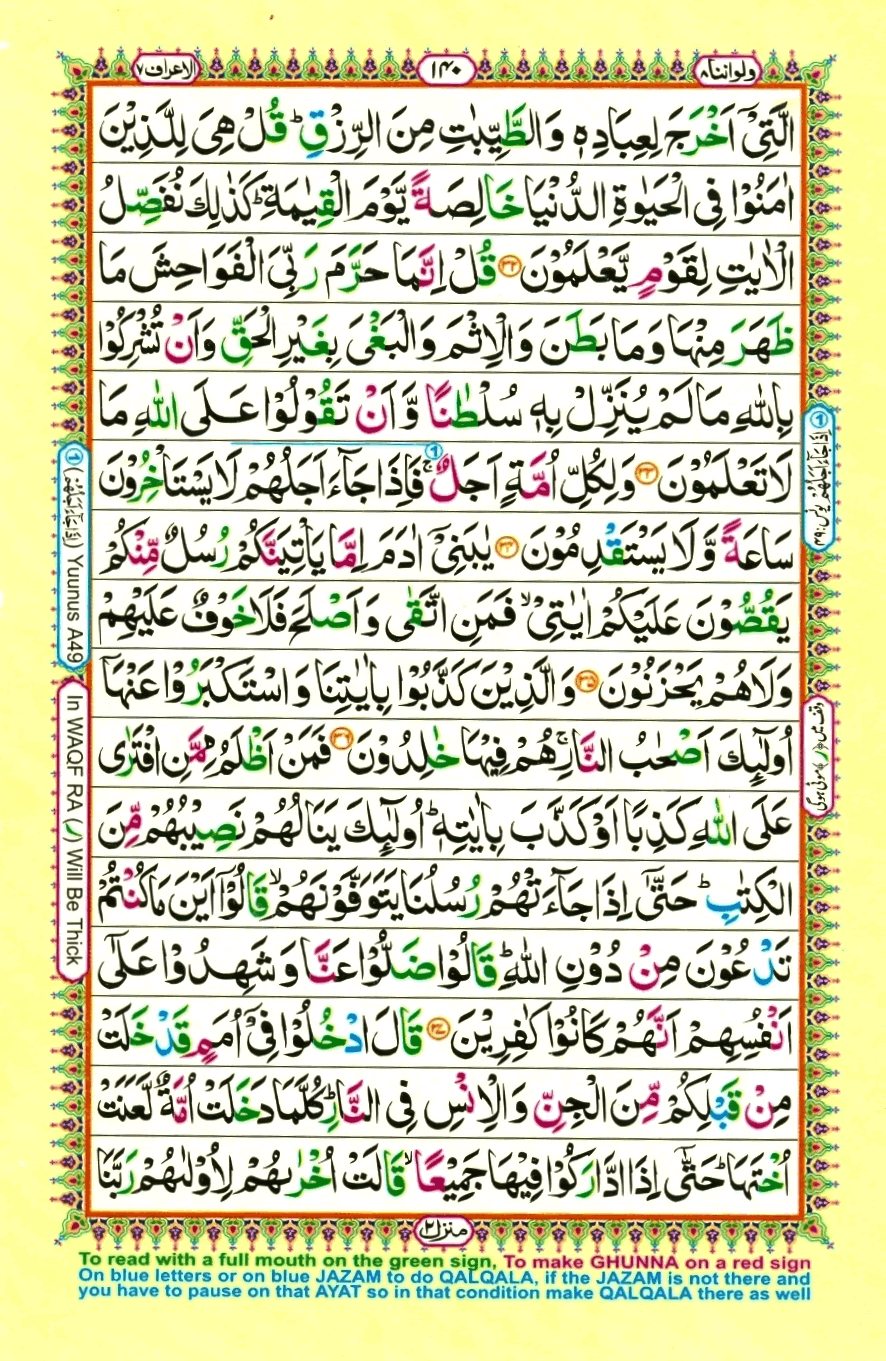 ولواننا ۸
۱۴۰
الاعراف ۷
الَّتِیْۤ اَخْرَجَ لِعِبَادِهٖ وَالطَّیِّبٰتِ مِنَ الرِّزْقِ ؕ قُلْ هِیَ لِلَّذِیْنَ
اٰمَنُوْا فِی الْحَیٰوةِ الدُّنْیَا خَالِصَةً یَّوْمَ الْقِیٰمَةِ ؕ كَذٰلِكَ نُفَصِّلُ
الْاٰیٰتِ لِقَوْمٍ یَّعْلَمُوْنَ ۝۳۲ قُلْ اِنَّمَا حَرَّمَ رَبِّیَ الْفَوَاحِشَ مَا
ظَهَرَ مِنْهَا وَمَا بَطَنَ وَالْاِثْمَ وَالْبَغْیَ بِغَیْرِ الْحَقِّ وَاَنْ تُشْرِكُوْا
بِاللّٰهِ مَا لَمْ یُنَزِّلْ بِهٖ سُلْطٰنًا وَّاَنْ تَقُوْلُوْا عَلَی اللّٰهِ مَا
لَا تَعْلَمُوْنَ ۝۳۳ وَلِكُلِّ اُمَّةٍ اَجَلٌ ۚ فَاِذَا جَآءَ اَجَلُهُمْ لَا یَسْتَاْخِرُوْنَ
سَاعَةً وَّلَا یَسْتَقْدِمُوْنَ ۝۳۴ یٰبَنِیْۤ اٰدَمَ اِمَّا یَاْتِیَنَّكُمْ رُسُلٌ مِّنْكُمْ
یَقُصُّوْنَ عَلَیْكُمْ اٰیٰتِیْ ۙ فَمَنِ اتَّقٰی وَاَصْلَحَ فَلَا خَوْفٌ عَلَیْهِمْ
وَلَا هُمْ یَحْزَنُوْنَ ۝۳۵ وَالَّذِیْنَ كَذَّبُوْا بِاٰیٰتِنَا وَاسْتَكْبَرُوْا عَنْهَاۤ
اُولٰٓىِٕكَ اَصْحٰبُ النَّارِ ۚ هُمْ فِیْهَا خٰلِدُوْنَ ۝۳۶ فَمَنْ اَظْلَمُ مِمَّنِ افْتَرٰی
عَلَی اللّٰهِ كَذِبًا اَوْ كَذَّبَ بِاٰیٰتِهٖ ؕ اُولٰٓىِٕكَ یَنَالُهُمْ نَصِیْبُهُمْ مِّنَ
الْكِتٰبِ ؕ حَتّٰۤی اِذَا جَآءَتْهُمْ رُسُلُنَا یَتَوَفَّوْنَهُمْ ۙ قَالُوْۤا اَیْنَ مَا كُنْتُمْ
تَدْعُوْنَ مِنْ دُوْنِ اللّٰهِ ؕ قَالُوْا ضَلُّوْا عَنَّا وَشَهِدُوْا عَلٰۤی
اَنْفُسِهِمْ اَنَّهُمْ كَانُوْا كٰفِرِیْنَ ۝۳۷ قَالَ ادْخُلُوْا فِیْۤ اُمَمٍ قَدْ خَلَتْ
مِنْ قَبْلِكُمْ مِّنَ الْجِنِّ وَالْاِنْسِ فِی النَّارِ ؕ كُلَّمَا دَخَلَتْ اُمَّةٌ لَّعَنَتْ
اُخْتَهَا ؕ حَتّٰۤی اِذَا ادَّارَكُوْا فِیْهَا جَمِیْعًا ۙ قَالَتْ اُخْرٰىهُمْ لِاُوْلٰىهُمْ رَبَّنَا
منزل ۲
۱ اِذَا جَآءَ اَجَلُهُمْ یونس : ۴۹
وقف میں (ر) موٹی ہوگی
۱ (اِذَا جَآءَ اَجَلُهُمْ) Yuunus A49
In WAQF RA (ر) Will Be Thick
To read with a full mouth on the green sign, To make GHUNNA on a red sign
On blue letters or on blue JAZAM to do QALQALA, if the JAZAM is not there and
you have to pause on that AYAT so in that condition make QALQALA there as well